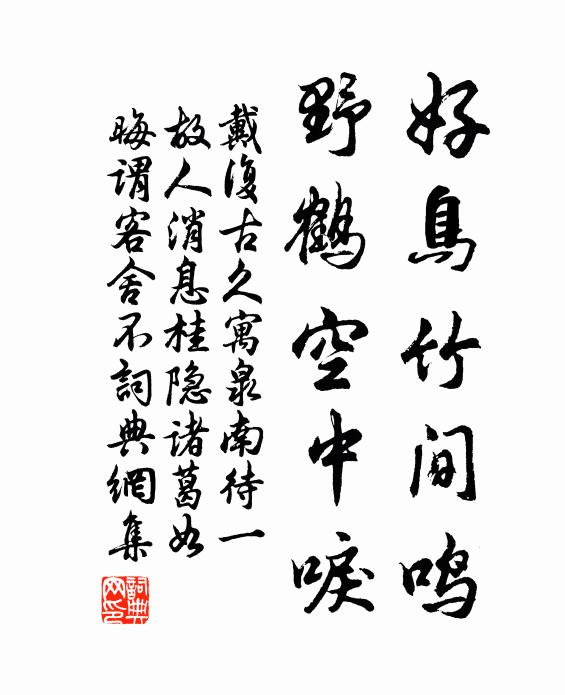 好鳥竹间鸣
野鹤空中唳
戴復古久寓泉南待一
故人消息桂隐诸葛如
晦謂客舍不詞典網集
詞典
网印